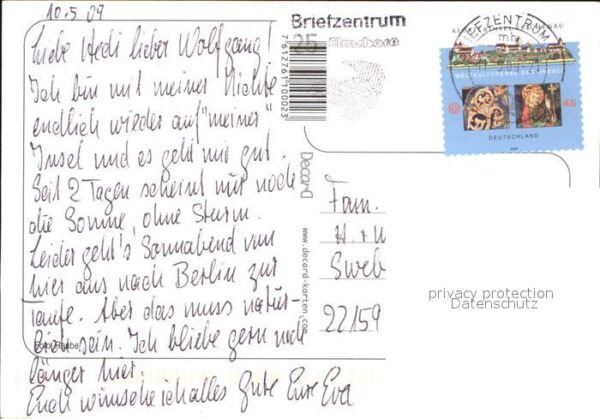 10.5.09
Liebe Hedi lieber Wolfgang!
Ich bin mit meiner Nichte
endlich wieder auf "meiner"
Insel und es geht mir gut.
Seit 2 Tagen scheint nur noch
die Sonne, ohne Sturm.
Leider geht's Sonnabend von
hier aus nach Berlin zur
Taufe. Aber das muss natür-
lich sein. Ich bliebe gern noch
länger hier.
Euch wünsche ich alles Gute Eure Eva
Foto: Raabe
Briefzentrum
25 Elmshorn
7612761100023
Decard
www.decard-karten.com
BRIEFZENTRUM
WELTKULTURERBE DER UNESCO
45
DEUTSCHLAND
Fam.
H. + U
Sweb
22159
privacy protection
Datenschutz